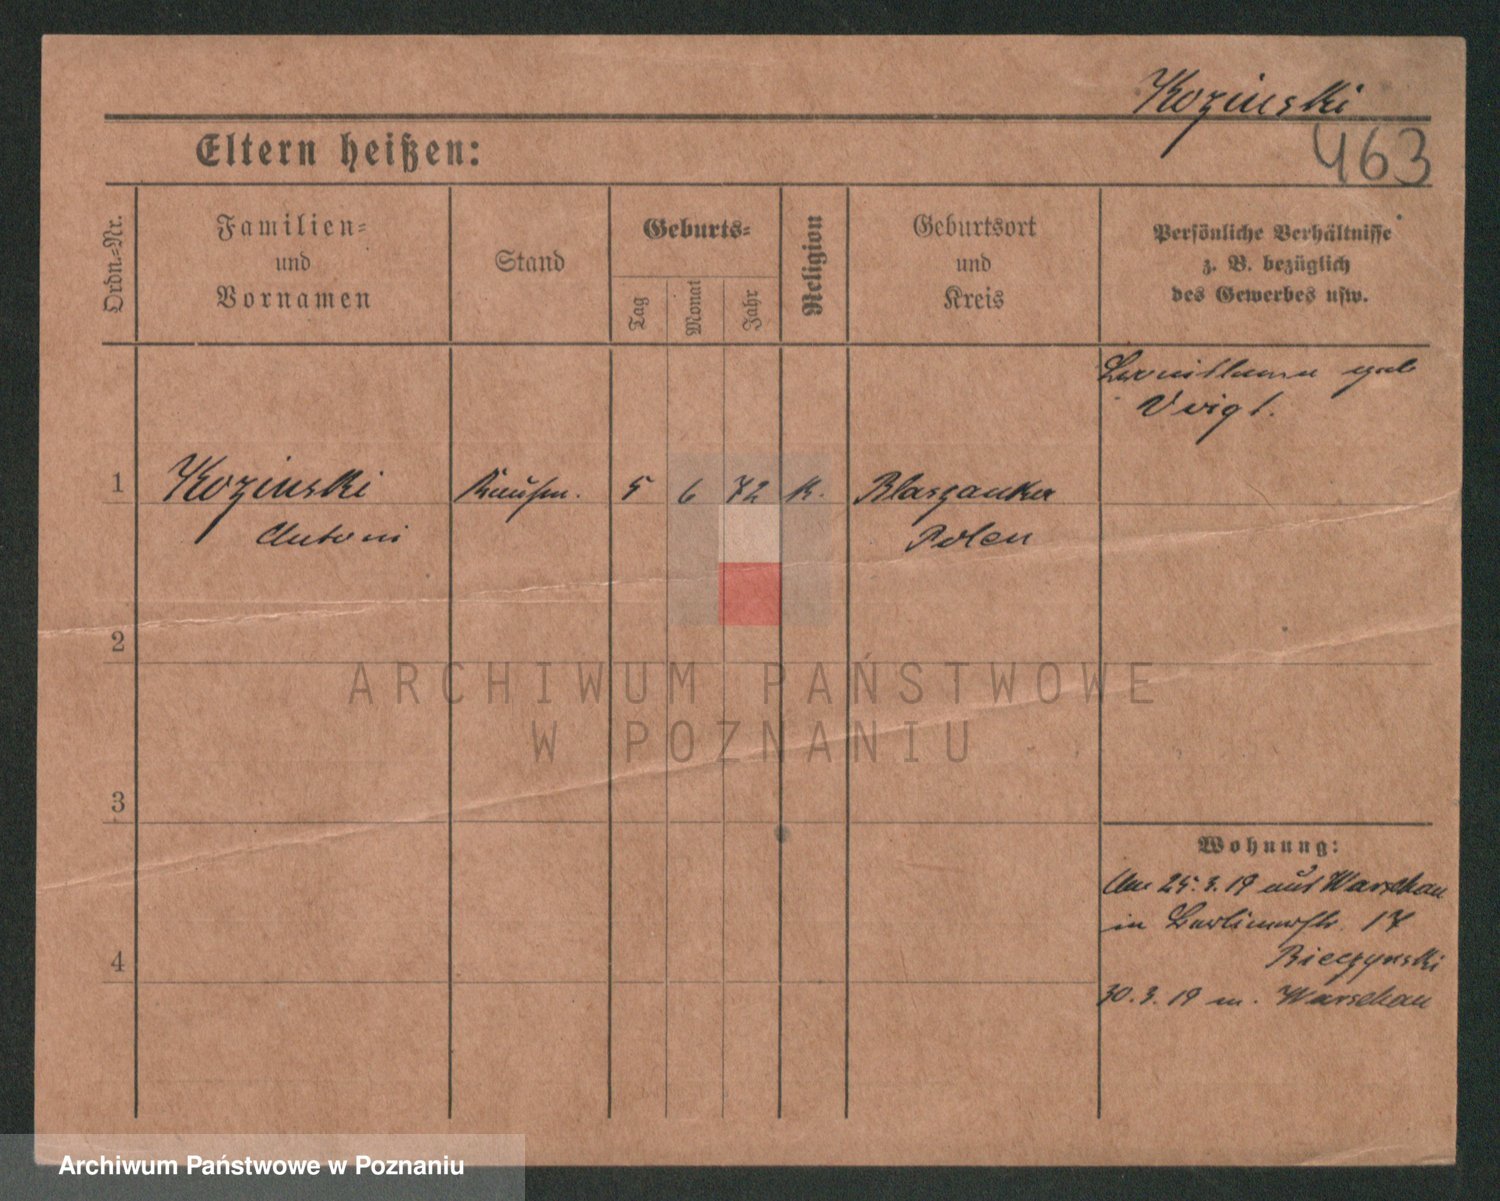 Kozinski
463
Eltern heißen:
Ordn.-Nr.
Familien-
und
Vornamen
Stand
Geburts-
Tag
Monat
Jahr
Religion
Geburtsort
und
Kreis
Persönliche Verhältnisse
z. B. bezüglich
des Gewerbes usw.
Voigt.
1
Kozinski
Kaufm.
5
6
72
K.
Antoni
Polen
2
ARCHIWUM PAŃSTWOWE
W POZNANIU
3
Wohnung:
Am 25.3.19 aus Warschau
in Berlinerstr. 17
4
Bieczynski
30.3.19 n. Warschau
Archiwum Państwowe w Poznaniu